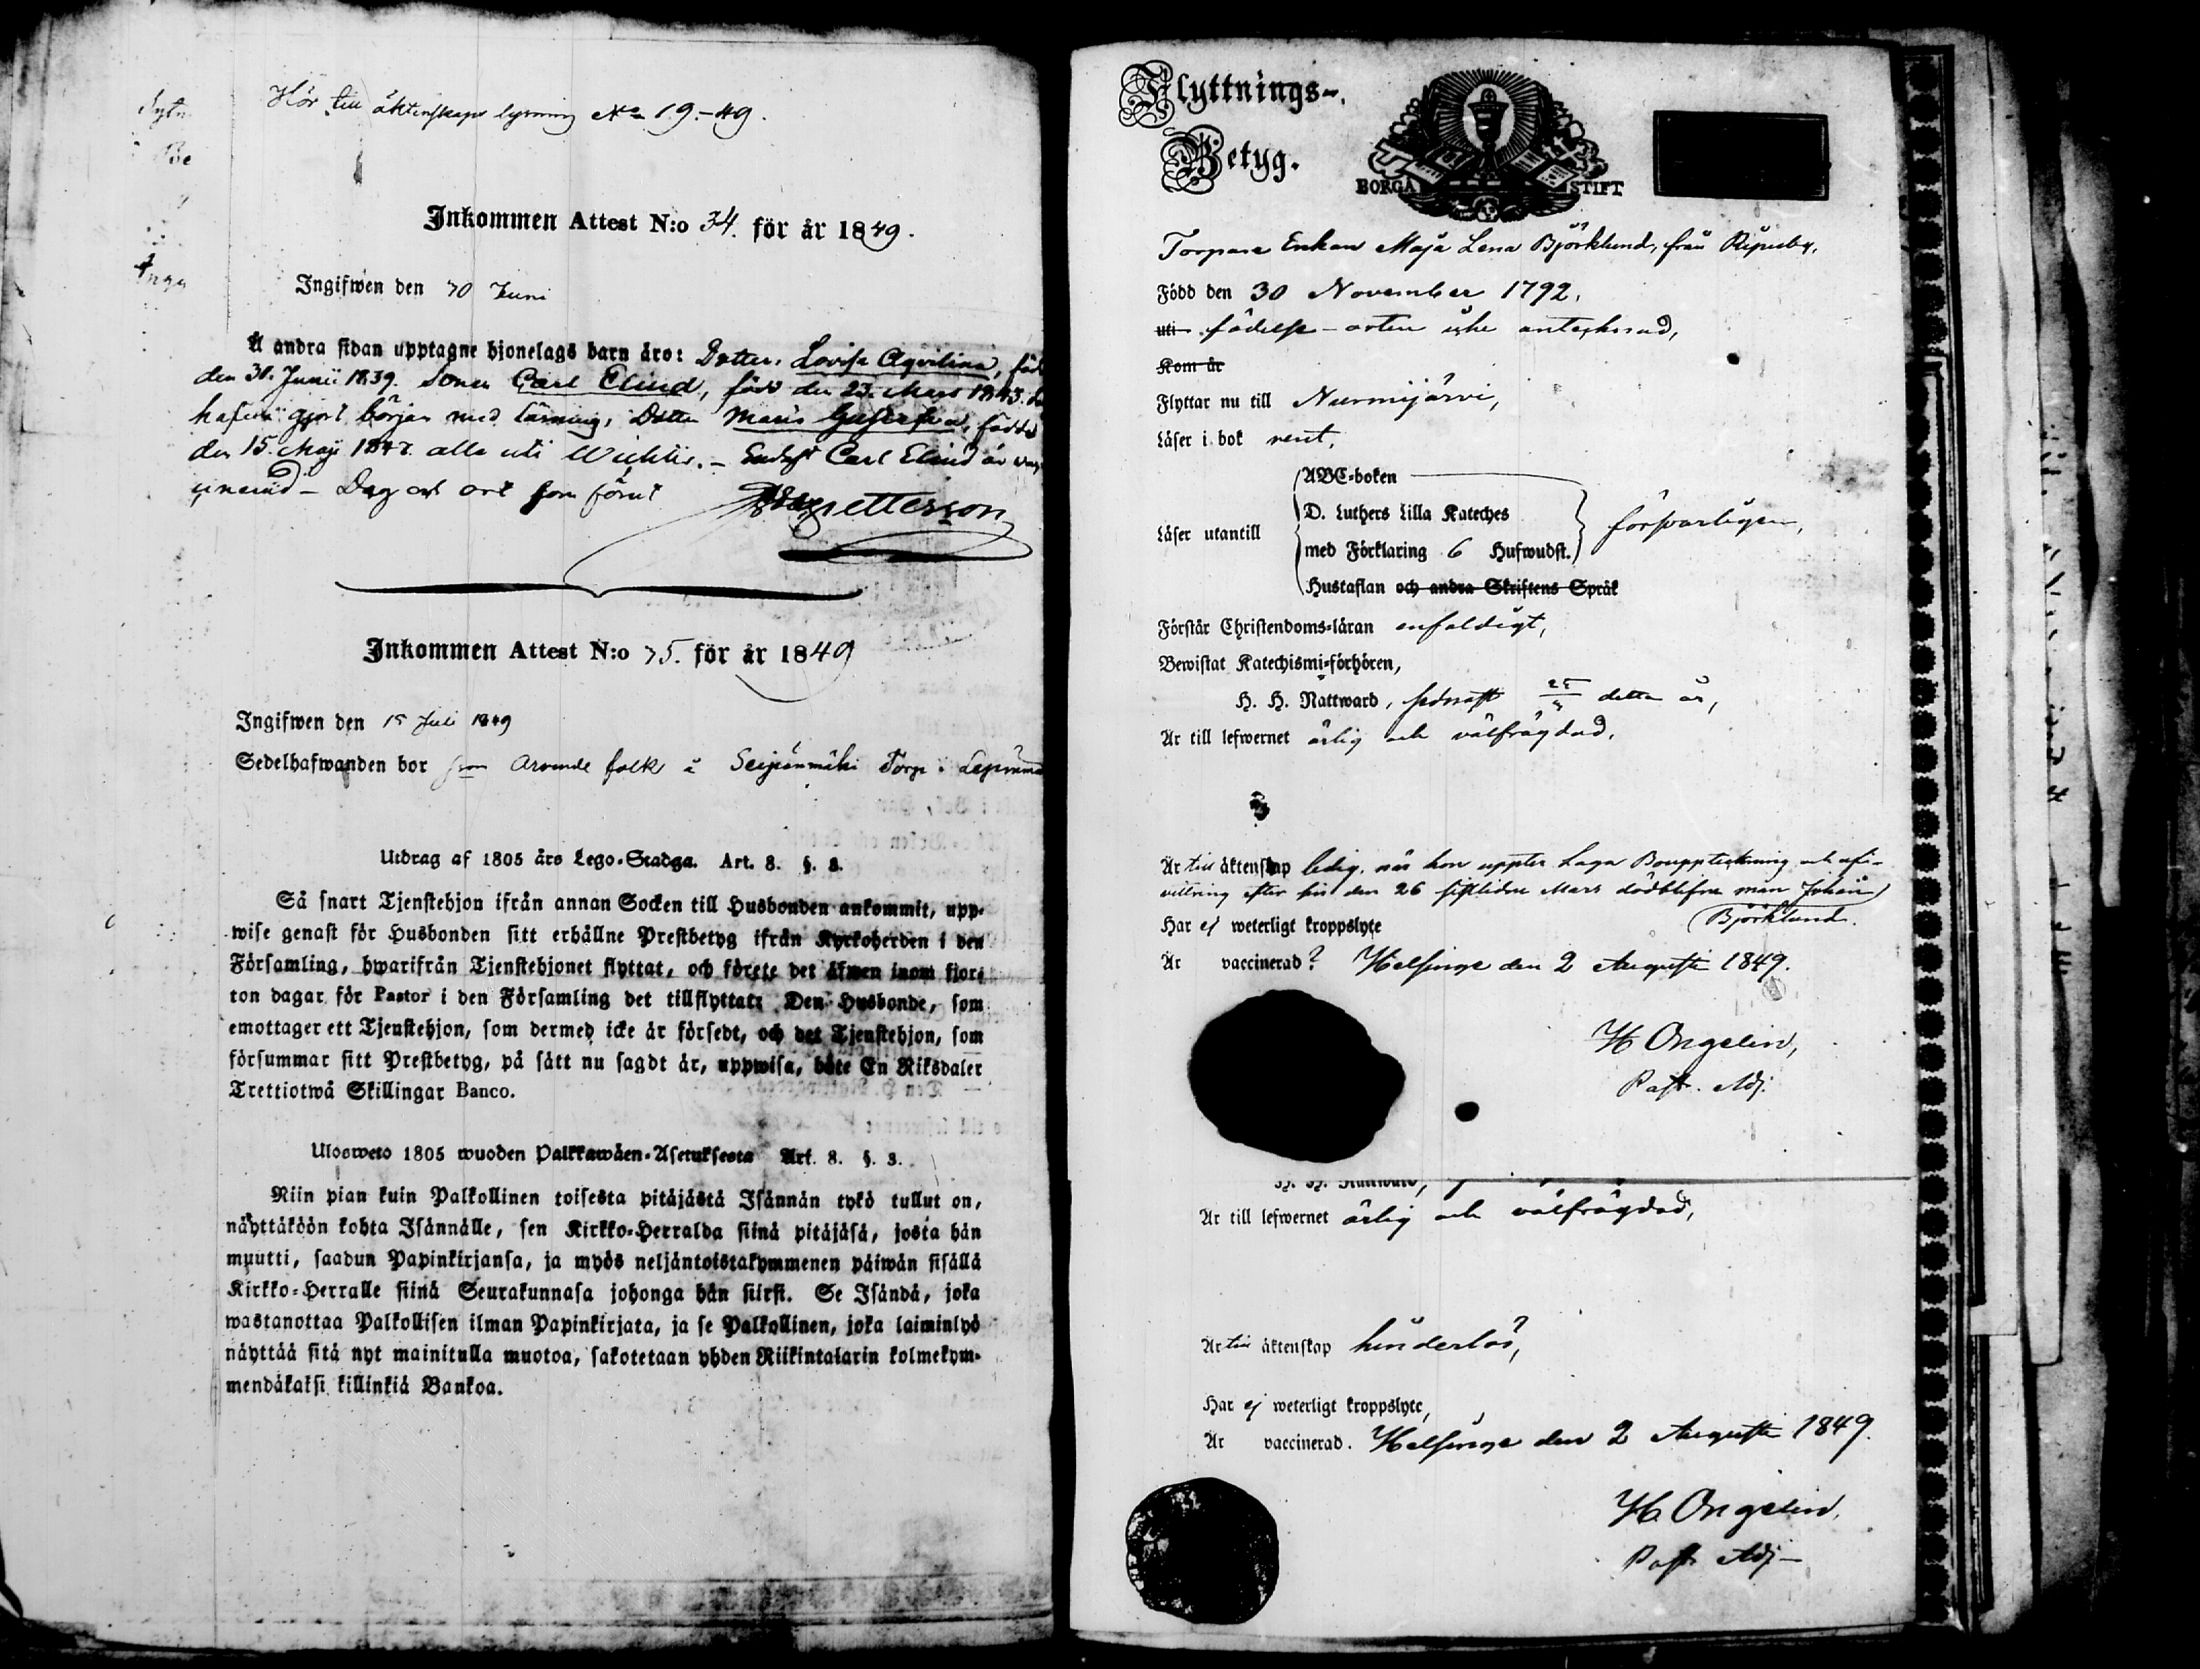 Hör till äktenskaps lysning No 19.-49.
Inkommen Attest N:o 34. för år 1849.
Ingifwen den 30 Juni
Å andra sidan upptagne hjonelags barn äro: Dotter, Lovisa Aqvilina, född
den 30. Junii 1839. Sonen Carl Elind, född den 23. Mars 1843.
hafva gjort början med läsning, Dotter Maria född
den 15. Maji 1847. alla uti Wichtis. – Endast Carl Elind är vac-
cinerad – Dag och ort som förut
Inkommen Attest N:o 35. för år 1849
Ingifwen den 15 Juli 1849
Sedelhafwanden bor som Arvende folk å Torp i
Utdrag af 1805 års Lego-Stadga. Art. 8. §. 3.
Så snart Tjenstehjon ifrån annan Socken till Husbonden ankommit, upp-
wise genast för Husbonden sitt erhållne Prestbetyg ifrån Kyrkoherden i den
Församling, hwarifrån Tjenstehjonet flyttat, och förete det äfwen inom fjor-
ton dagar för Pastor i den Församling det tillflyttat: Den Husbonde, som
emottager ett Tjenstehjon, som dermed icke är försedt, och det Tjenstehjon, som
försummar sitt Prestbetyg, på sätt nu sagdt är, uppwisa, böte En Riksdaler
Trettiotwå Skillingar Banco.
Ulosweto 1805 wuoden Palkkawäen-Asetuksesta Art. 8. §. 3.
Niin pian kuin Palkollinen toisesta pitäjästä Isännän tykö tullut on,
näyttäköön kohta Isännälle, sen Kirkko-Herralda siinä pitäjäsä, josta hän
muutti, saadun Papinkirjansa, ja myös neljäntoistakymmenen päiwän sisällä
Kirkko-Herralle siinä Seurakunnasa johonga hän siirsi. Se Isändä, joka
wastanottaa Palkollisen ilman Papinkirjata, ja se Palkollinen, joka laiminlyö
näyttää sitä nyt mainitulla muotoa, sakotetaan yhden Riikintalarin kolmekym-
mendäkaksi killinkiä Bankoa.
Flyttnings-
Betyg.
BORGÅ STIFT
Torpare Enkan Maja Lena Björklund, från Ripuby,
Född den 30 November 1792,
uti födelse-orten icke antecknad,
Kom år
Flyttar nu till Nurmijärvi,
Läser i bok rent,
ABC-boken
D. Luthers Lilla Kateches
Läser utantill
försvarligen,
med Förklaring 6 Hufwudst.
Hustaflan och andra Skriftens Språk
Förstår Christendoms-läran enfaldigt,
Bewistat Katechismi-förhören,
H. H. Nattward, sednast detta år,
Är till lefwernet ärlig och välfrägdad,
Är till äktenskap ledig, när hon uppter Laga Bouppteckning och afvi-
ttring efter sin den 26 sistlidne Mars dödblifne man Johan
Björklund.
Har ej weterligt kroppslyte
Är vaccinerad? Helsinge den 2 Augusti 1849.
H Ongelin,
Past. Adj.
H. H. Nattward,
Är till lefwernet ärlig och välfrägdad,
Är till äktenskap hinderlös,
Har ej weterligt kroppslyte,
Är vaccinerad. Helsinge den 2 Augusti 1849.
H Ongelin,
Past. Adj–